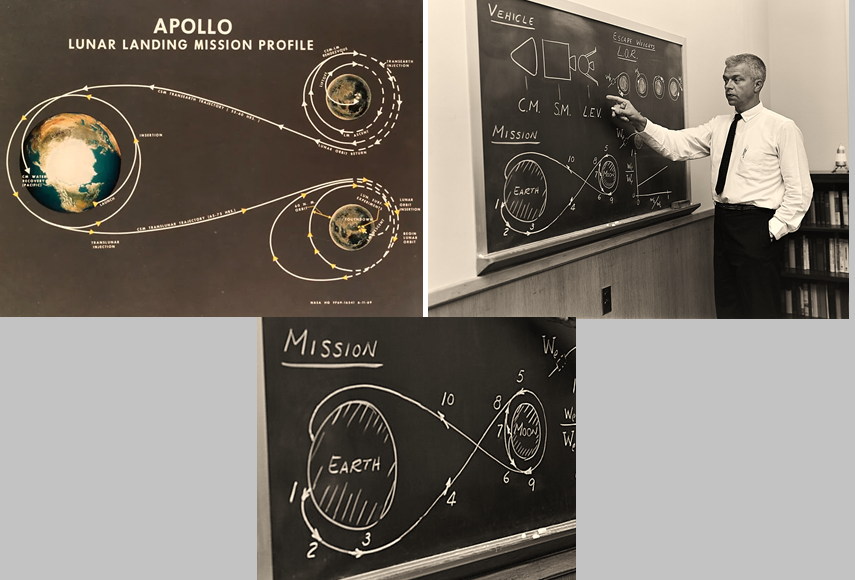 APOLLO
LUNAR LANDING MISSION PROFILE
CSM-LM
RENDEZVOUS
TRANSEARTH
INJECTION
CSM TRANSEARTH TRAJECTORY
LM ASCENT
LUNAR ORBIT RETURN
INSERTION
CM WATER
RECOVERY
(PACIFIC)
LAUNCH
CSM TRANSLUNAR TRAJECTORY
TRANSLUNAR
INJECTION
60 N. M.
ORBIT
TOUCHDOWN
LUNAR
ORBIT
INSERTION
BEGIN
LUNAR
ORBIT
VEHICLE
ESCAPE WEIGHTS
L.O.R.
C.M. S.M. L.E.V.
MISSION
EARTH
MOON
1
2
3
4
5
6
7
8
9
10
MISSION
10
5
8
7
MOON
EARTH
6
9
1
4
2
3